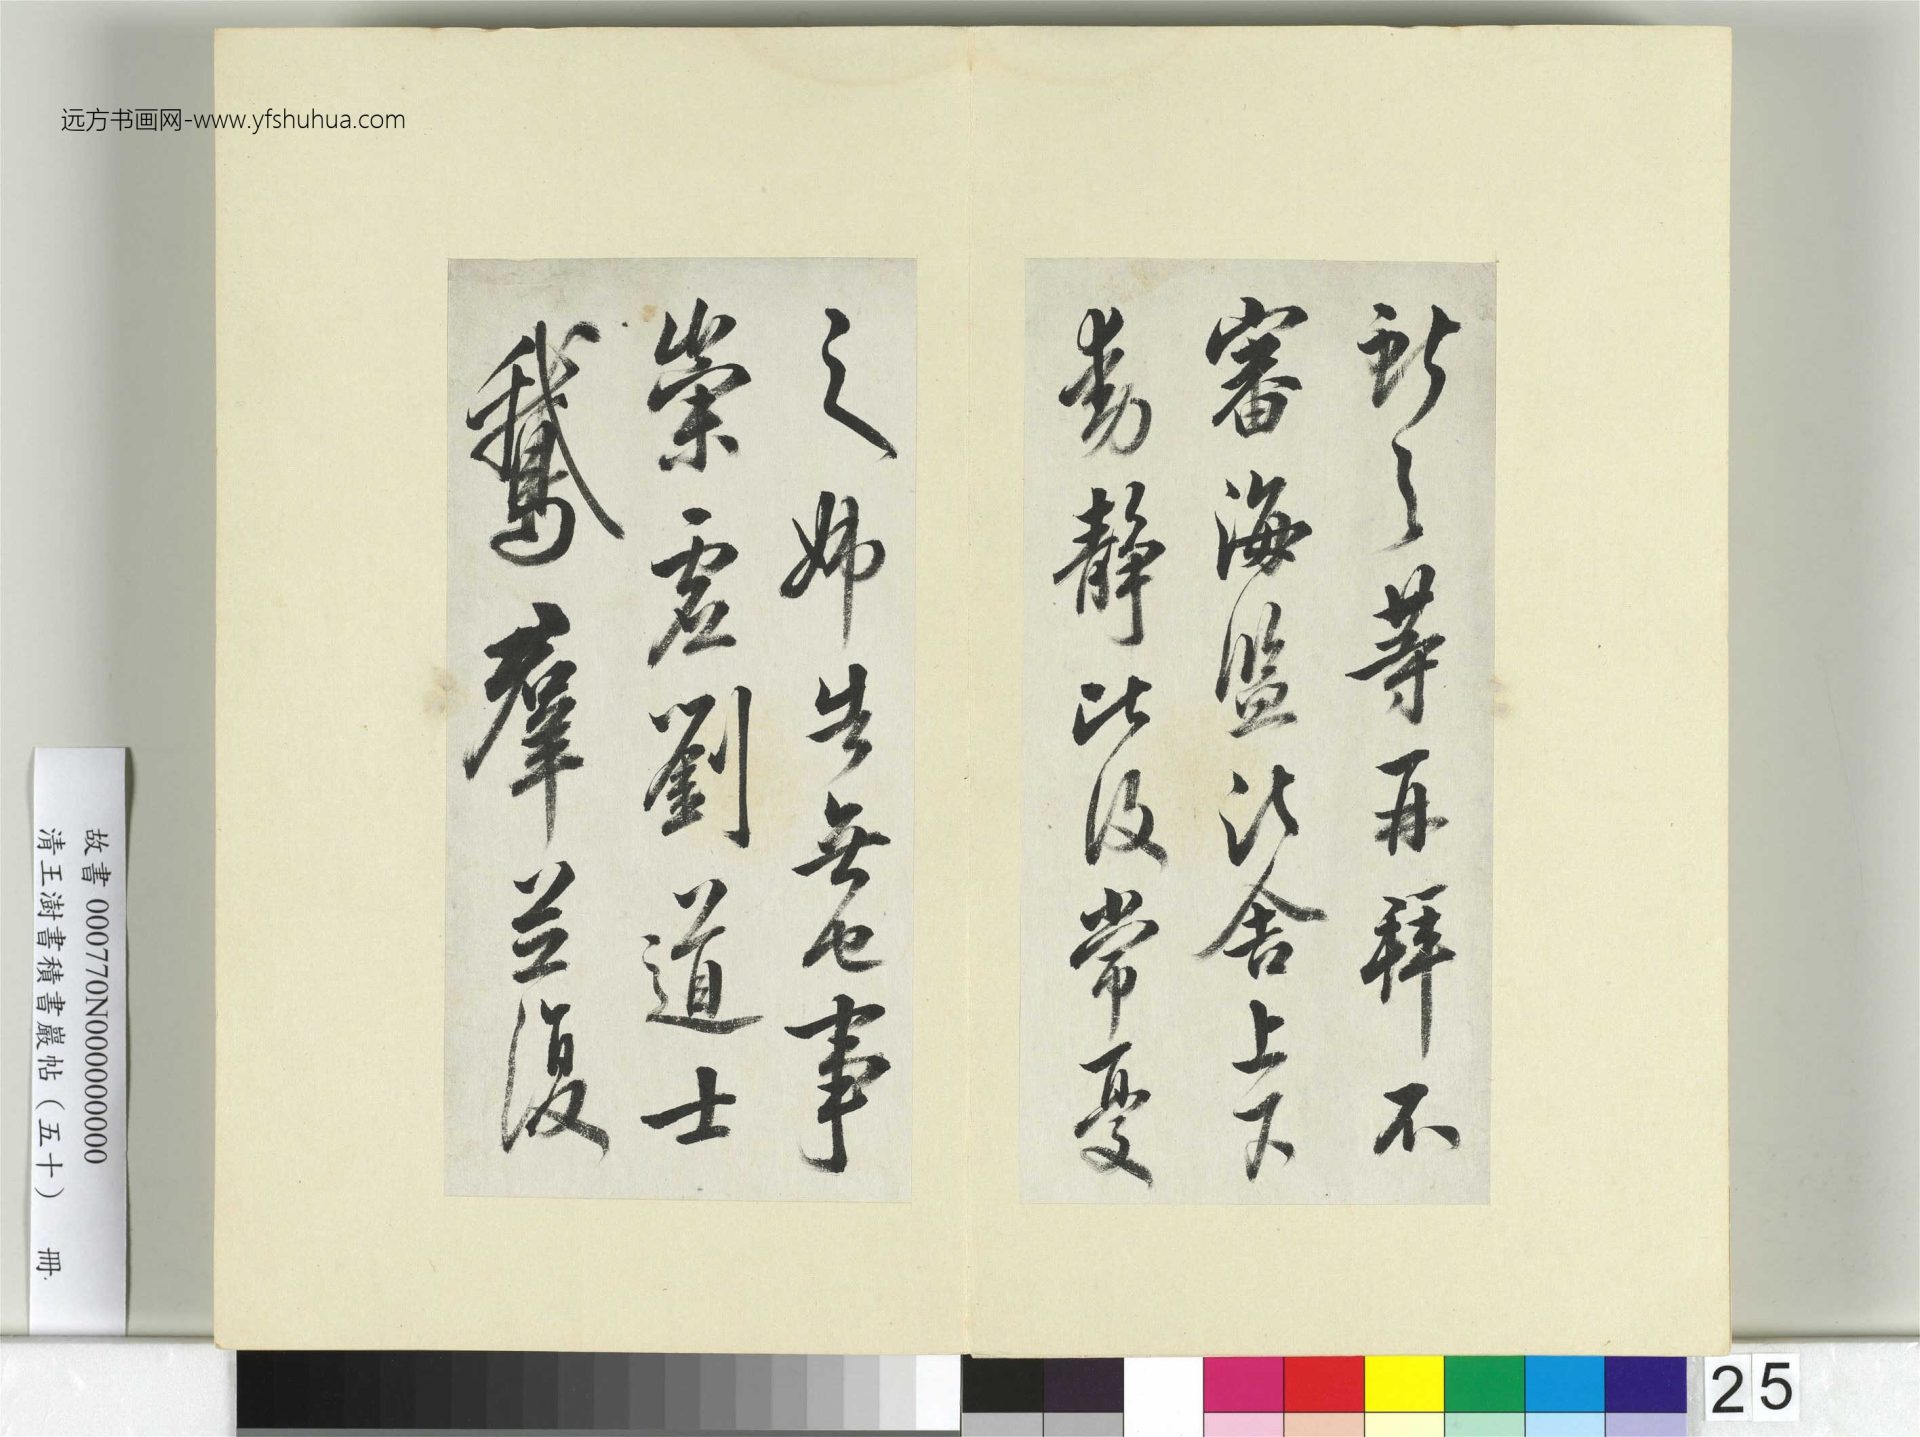 远方书画网-www.yfshuhua.com
獻之等再拜不
審海鹽諸舍上下
動靜比復常憂
之姊告無它事
崇虛劉道士
鵝羣並復
故書 000770N000000000
清王澍書積書巖帖（五十） 冊
25